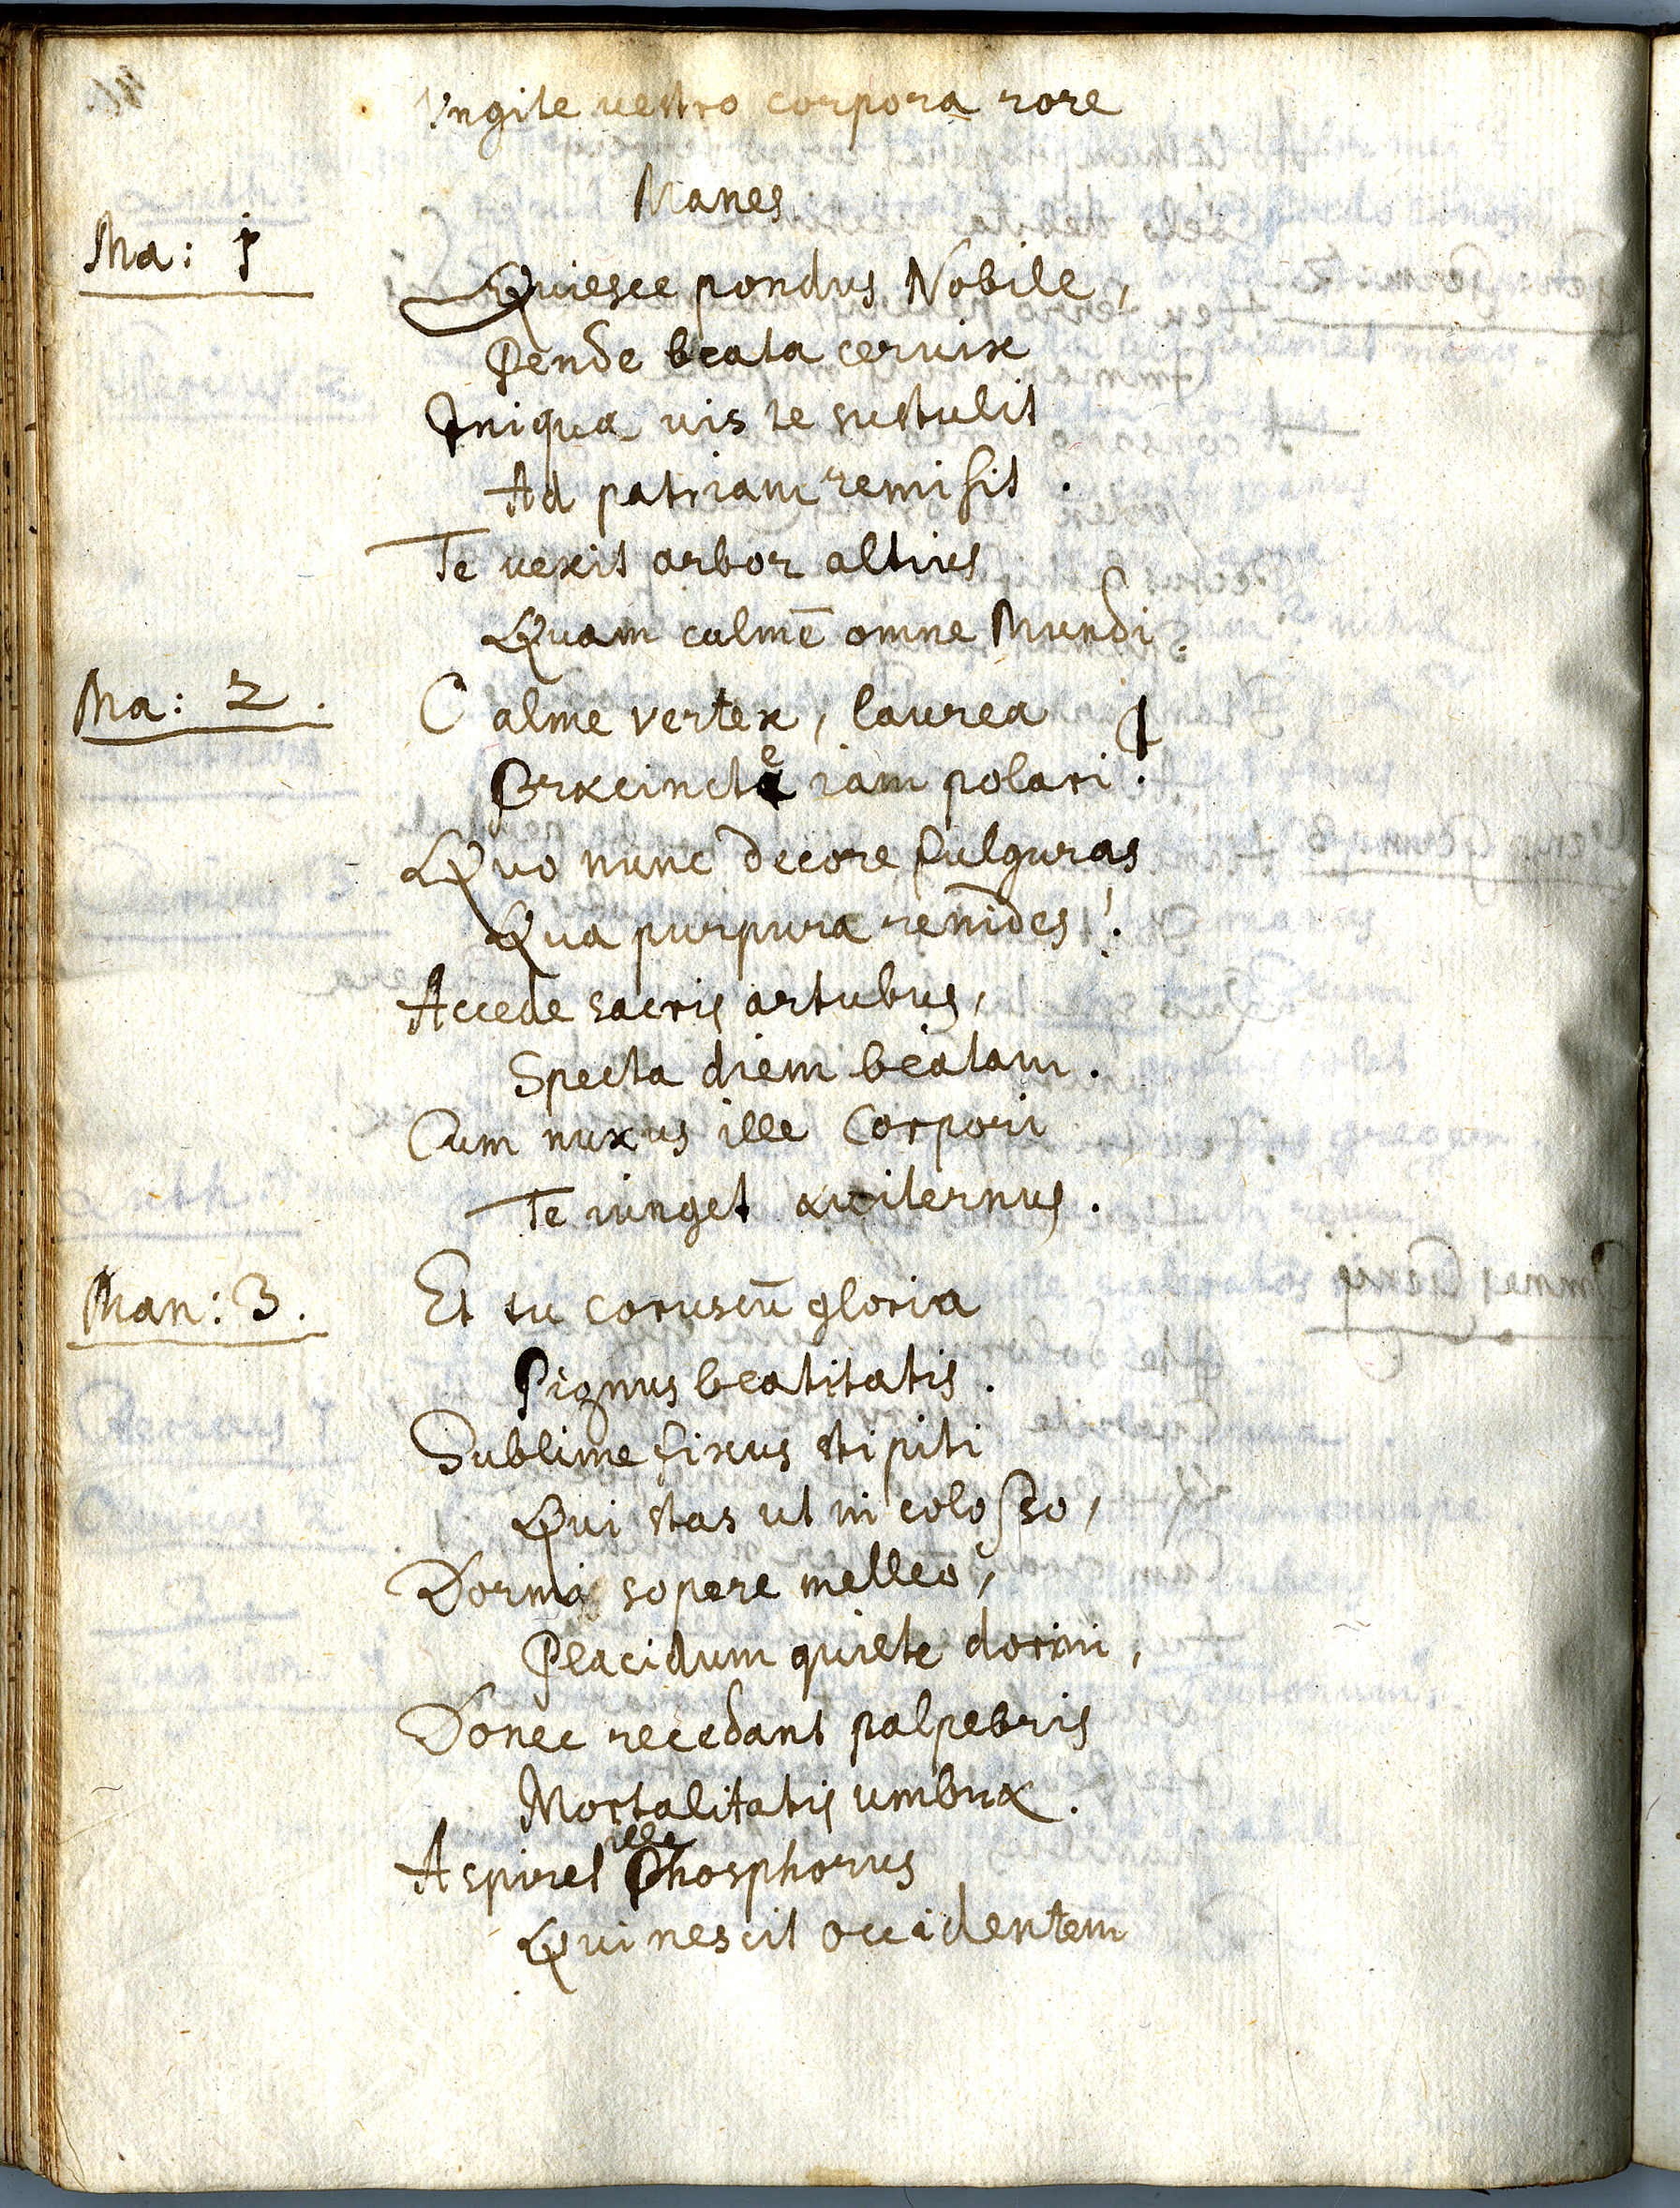 Vngite uestro corpora rore
Manes
Ma: 1
Quiesce pondus Nobile,
Pende beata ceruix
Iniqua uis te sustulit
Ad patriam remisit.
Te uexit arbor altius
Quam culmē omne Mundi.
Ma: 2.
O alme vertex, laurea
Præcincte iam polari!
Quo nunc decore fulguras
Qua purpura renides!
Accede sacris artubus,
Specta diem beatam.
Cum nuxus ille Corpori
Te iunget æuiternus.
Man: 3.
Et tu coruscū gloria
Pignus beatitatis.
Sublime fixus stipiti
Qui stas ut in colosso,
Dormi sopore melleo,
Placidum quiete dormi,
Donec recedant palpebris
Mortalitatis umbræ.
Aspiret ille Phosphorus
Qui nescit occidentem